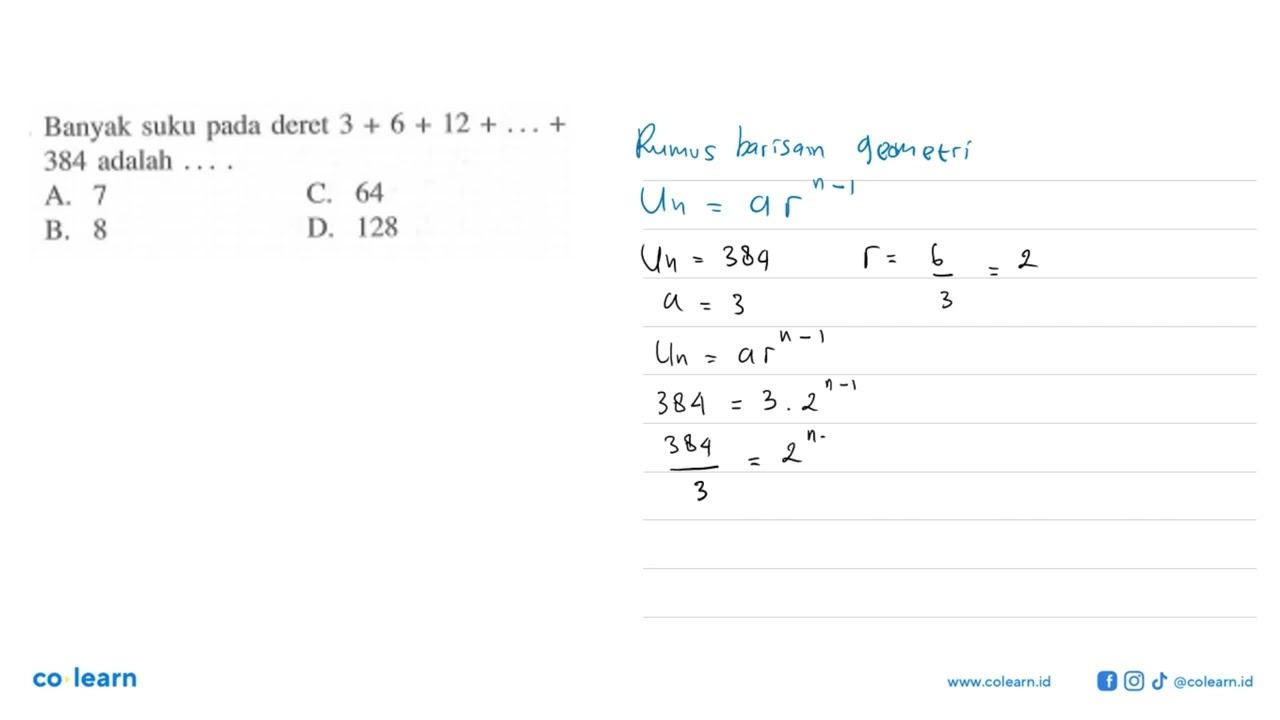 Banyak suku pada deret 3 + 6 + 12 + ... +
384 adalah ....
A. 7 C. 64
B. 8 D. 128
Rumus barisan geometri
Un = ar^{n-1}
Un = 384 r = 6/3 = 2
a = 3
Un = ar^{n-1}
384 = 3 . 2^{n-1}
384/3 = 2^{n-}
co learn
www.colearn.id @colearn.id